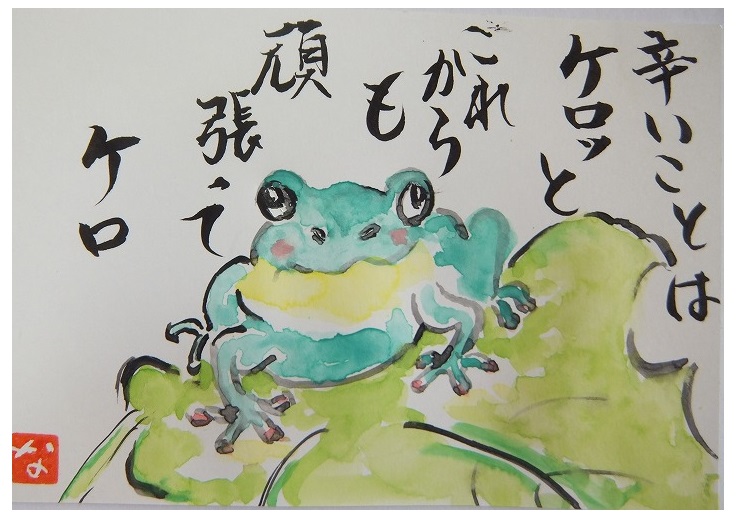 辛いことは
ケロッと
これ
からも
頑
張って
ケロ
な